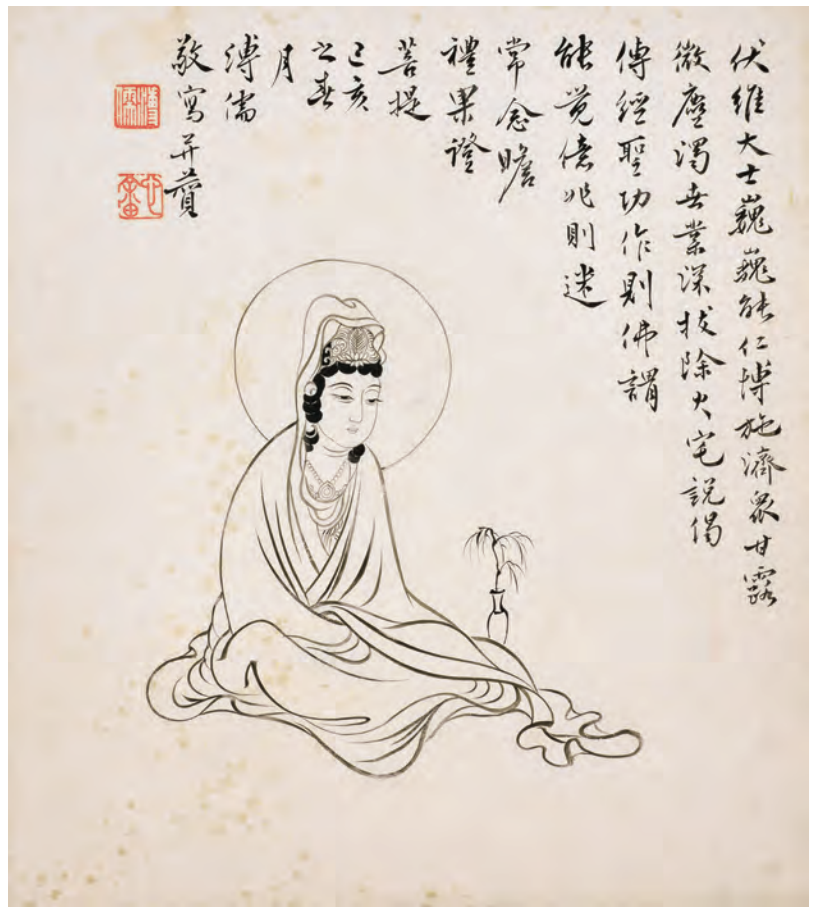 伏維大士巍巍能仁博施濟眾甘露
微塵濁世業深拔除火宅說偈
傳經聖功作則佛謂
能覺億兆則迷
常念瞻
禮果證
菩提
己亥
之春
月
溥儒
敬寫并贊
溥儒
心畬